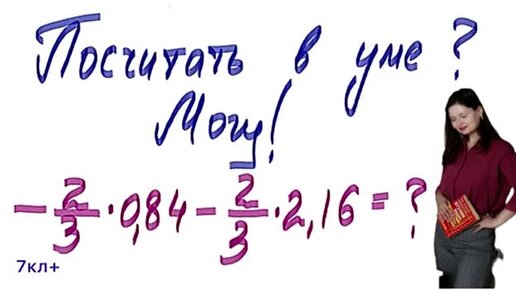 Посчитать в уме?
Могу!
-2/3·0,84-2/3·2,16=?
7кл+